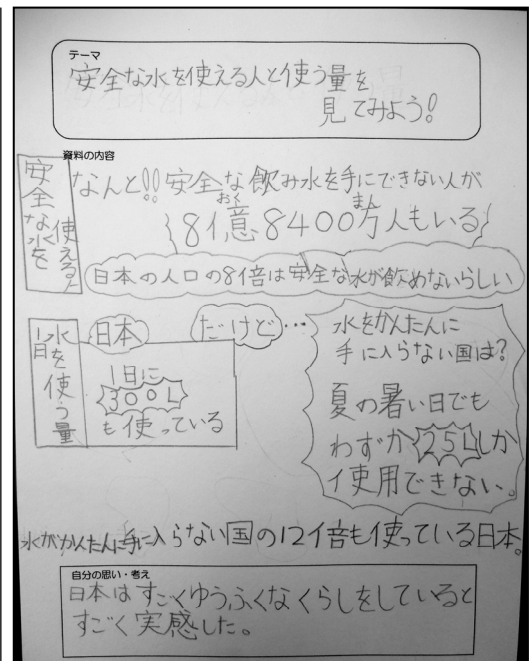 テーマ
安全な水を使える人と使う量を
見てみよう!
資料の内容
安全な水を
使える人
なんと!!安全な飲み水を手にできない人が
8億8400万人もいる
おく
まん
日本の人口の8倍は安全な水が飲めないらしい
水を使う量
1日
日本
1日に
300L
も使っている
だけど…
水をかんたんに
手に入らない国は?
夏の暑い日でも
わずか25Lしか
使用できない。
水がかんたんに手に入らない国の12倍も使っている日本。
自分の思い・考え
日本はすごくゆうふくなくらしをしていると
すごく実感した。